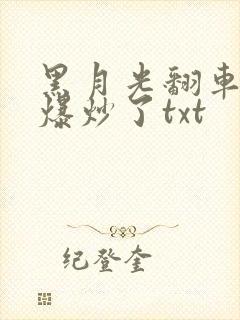 黑月光翻車
爆炒了txt
纪登奎